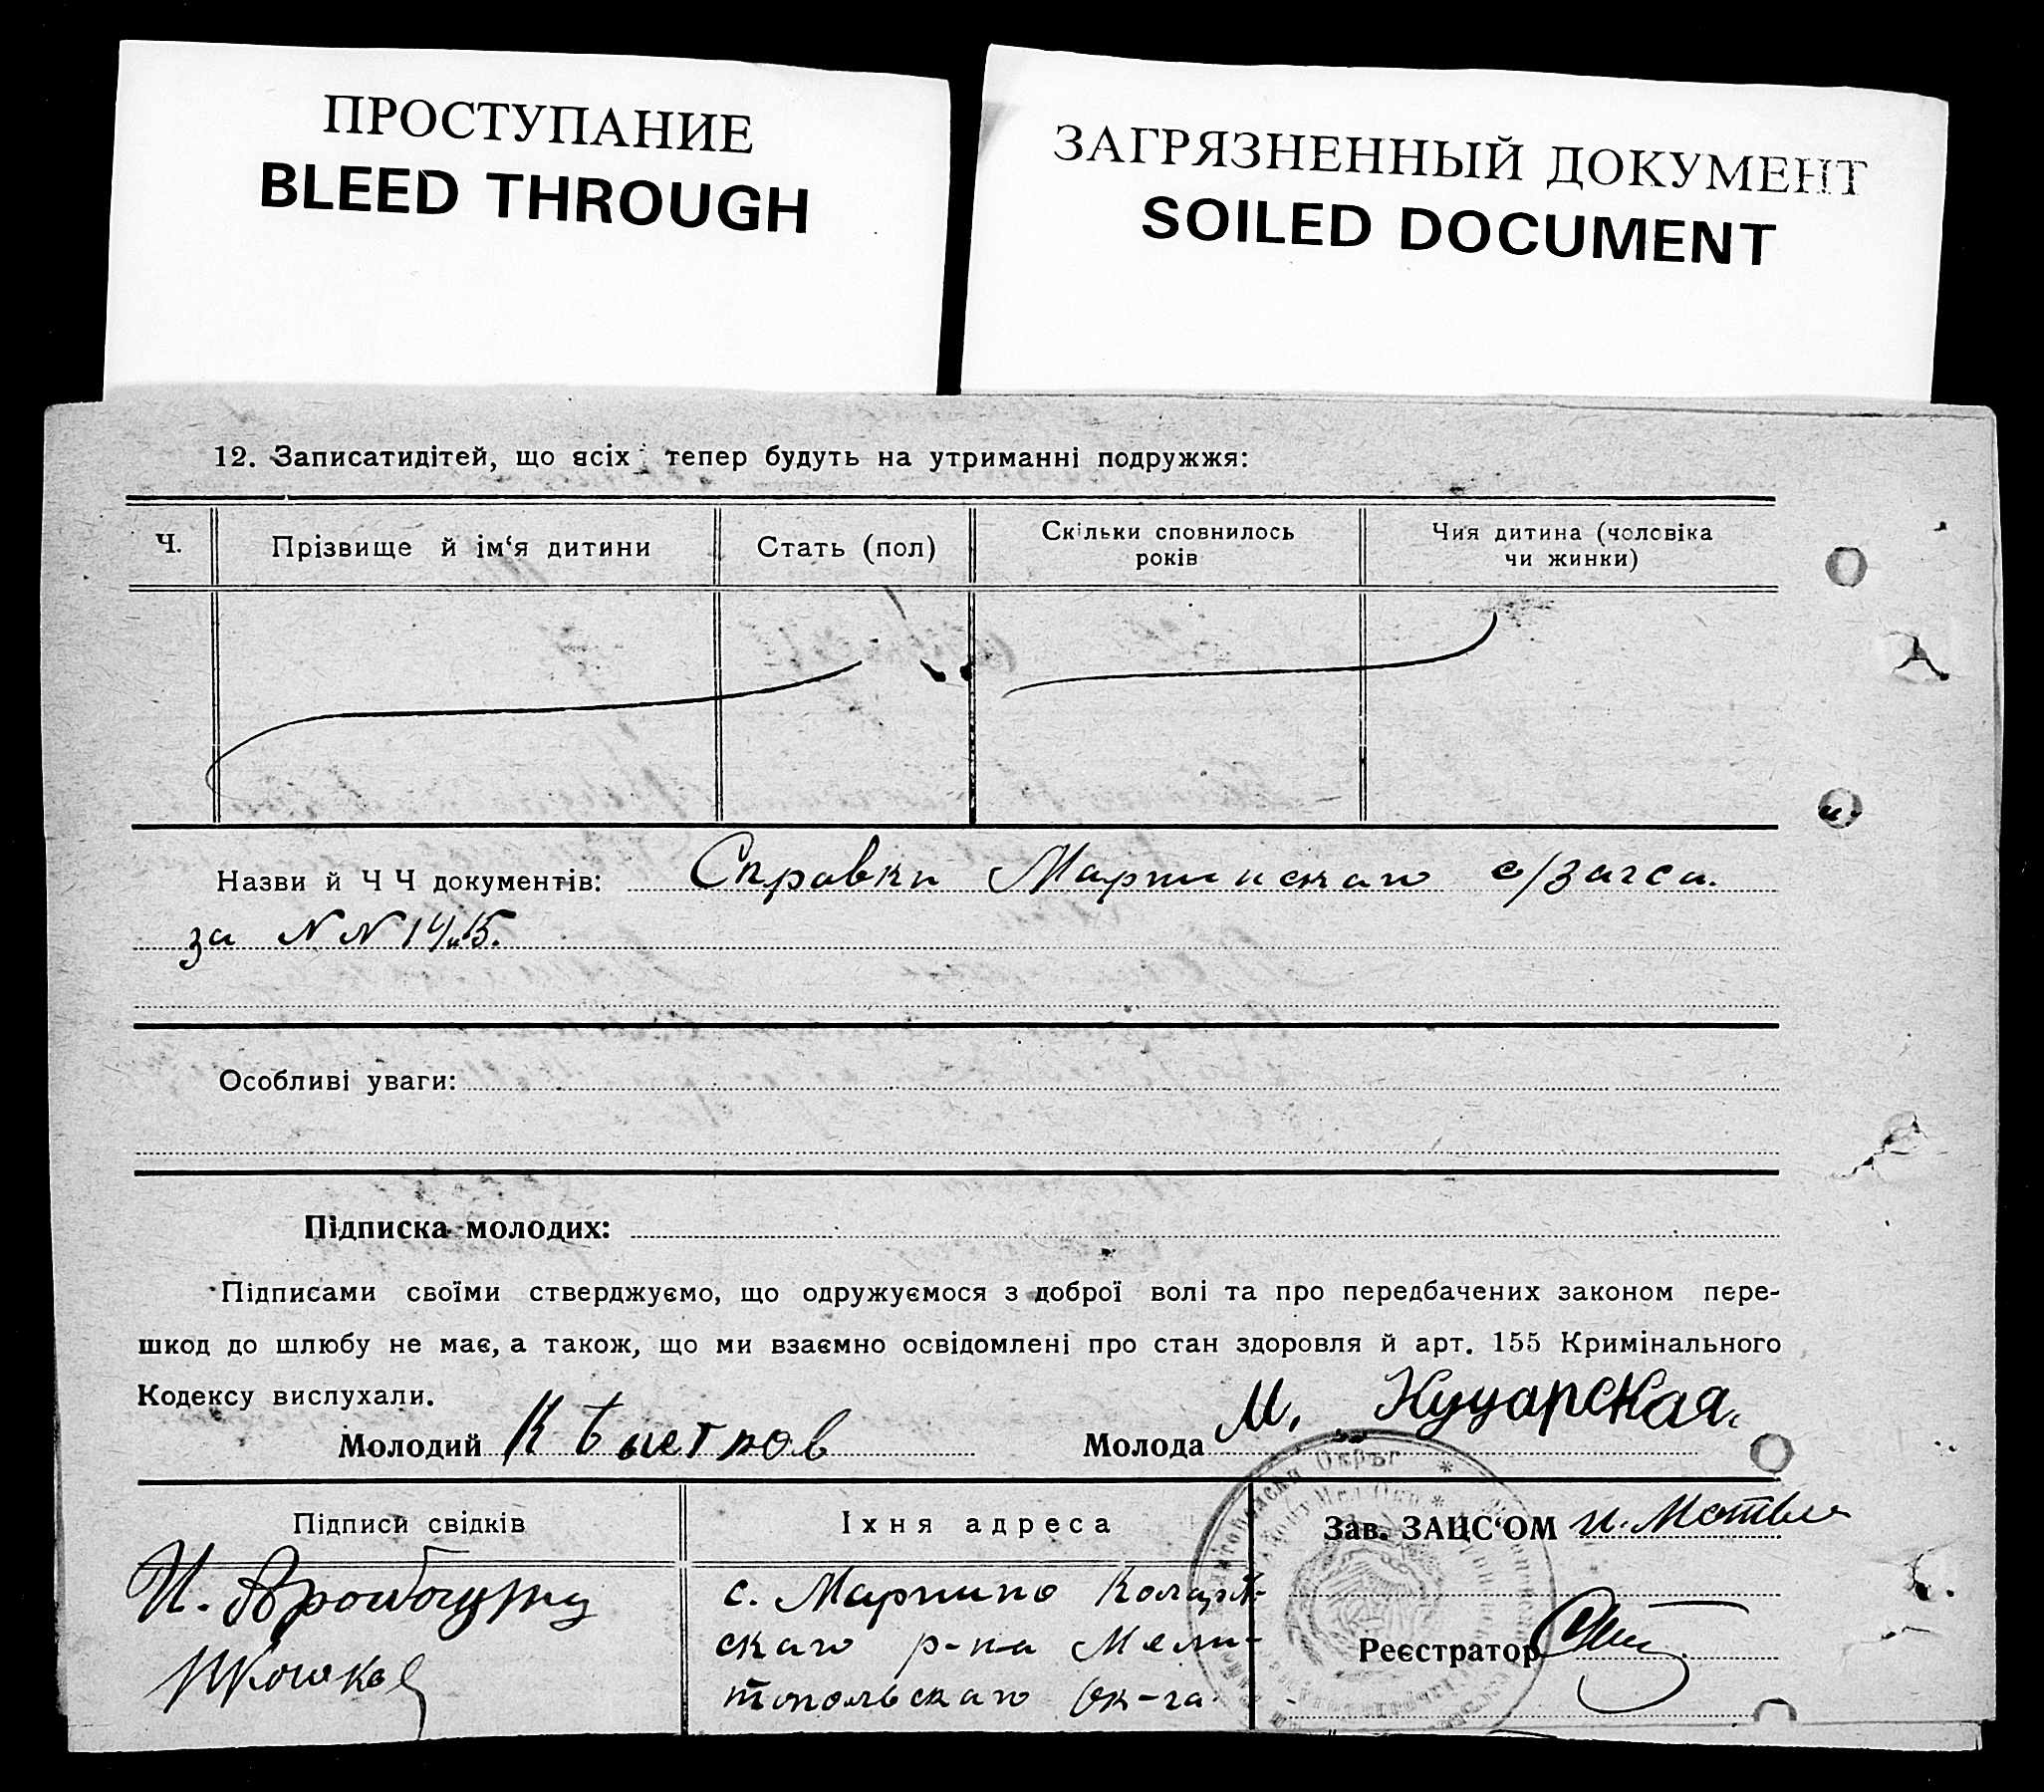 ПРОСТУПАНИЕ
BLEED THROUGH
ЗАГРЯЗНЕННЫЙ ДОКУМЕНТ
SOILED DOCUMENT
12. Записатидітей, що всіх тепер будуть на утриманні подружжя:
Ч.
Прізвище й ім‘я дитини
Стать (пол)
Скільки сповнилось
років
Чия дитина (чоловіка
чи жинки)
Назви й Ч Ч документів: Справки с/загса.
за N N 14 и 15.
Особливі уваги:
Підписка молодих:
Підписами своїми стверджуємо, що одружуємося з доброї волі та про передбачених законом пере-
шкод до шлюбу не має, а також, що ми взаємно освідомлені про стан здоровля й арт. 155 Кримінального
Кодексу вислухали.
Молодий К
Молода М.
Підписи свідків
Їхня адреса
Зав. ЗАЦС‘ОМ
И.
с.
скаго р-на Мели-
топольскаго Ок-га
Реєстратор